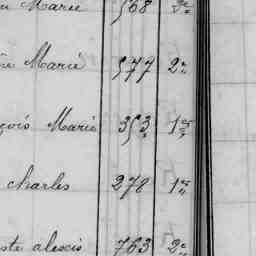 Marie 568 2e
Marie 577 2e
çois Marie 353 1er
charles 278 1er
ste alexis 763 2e